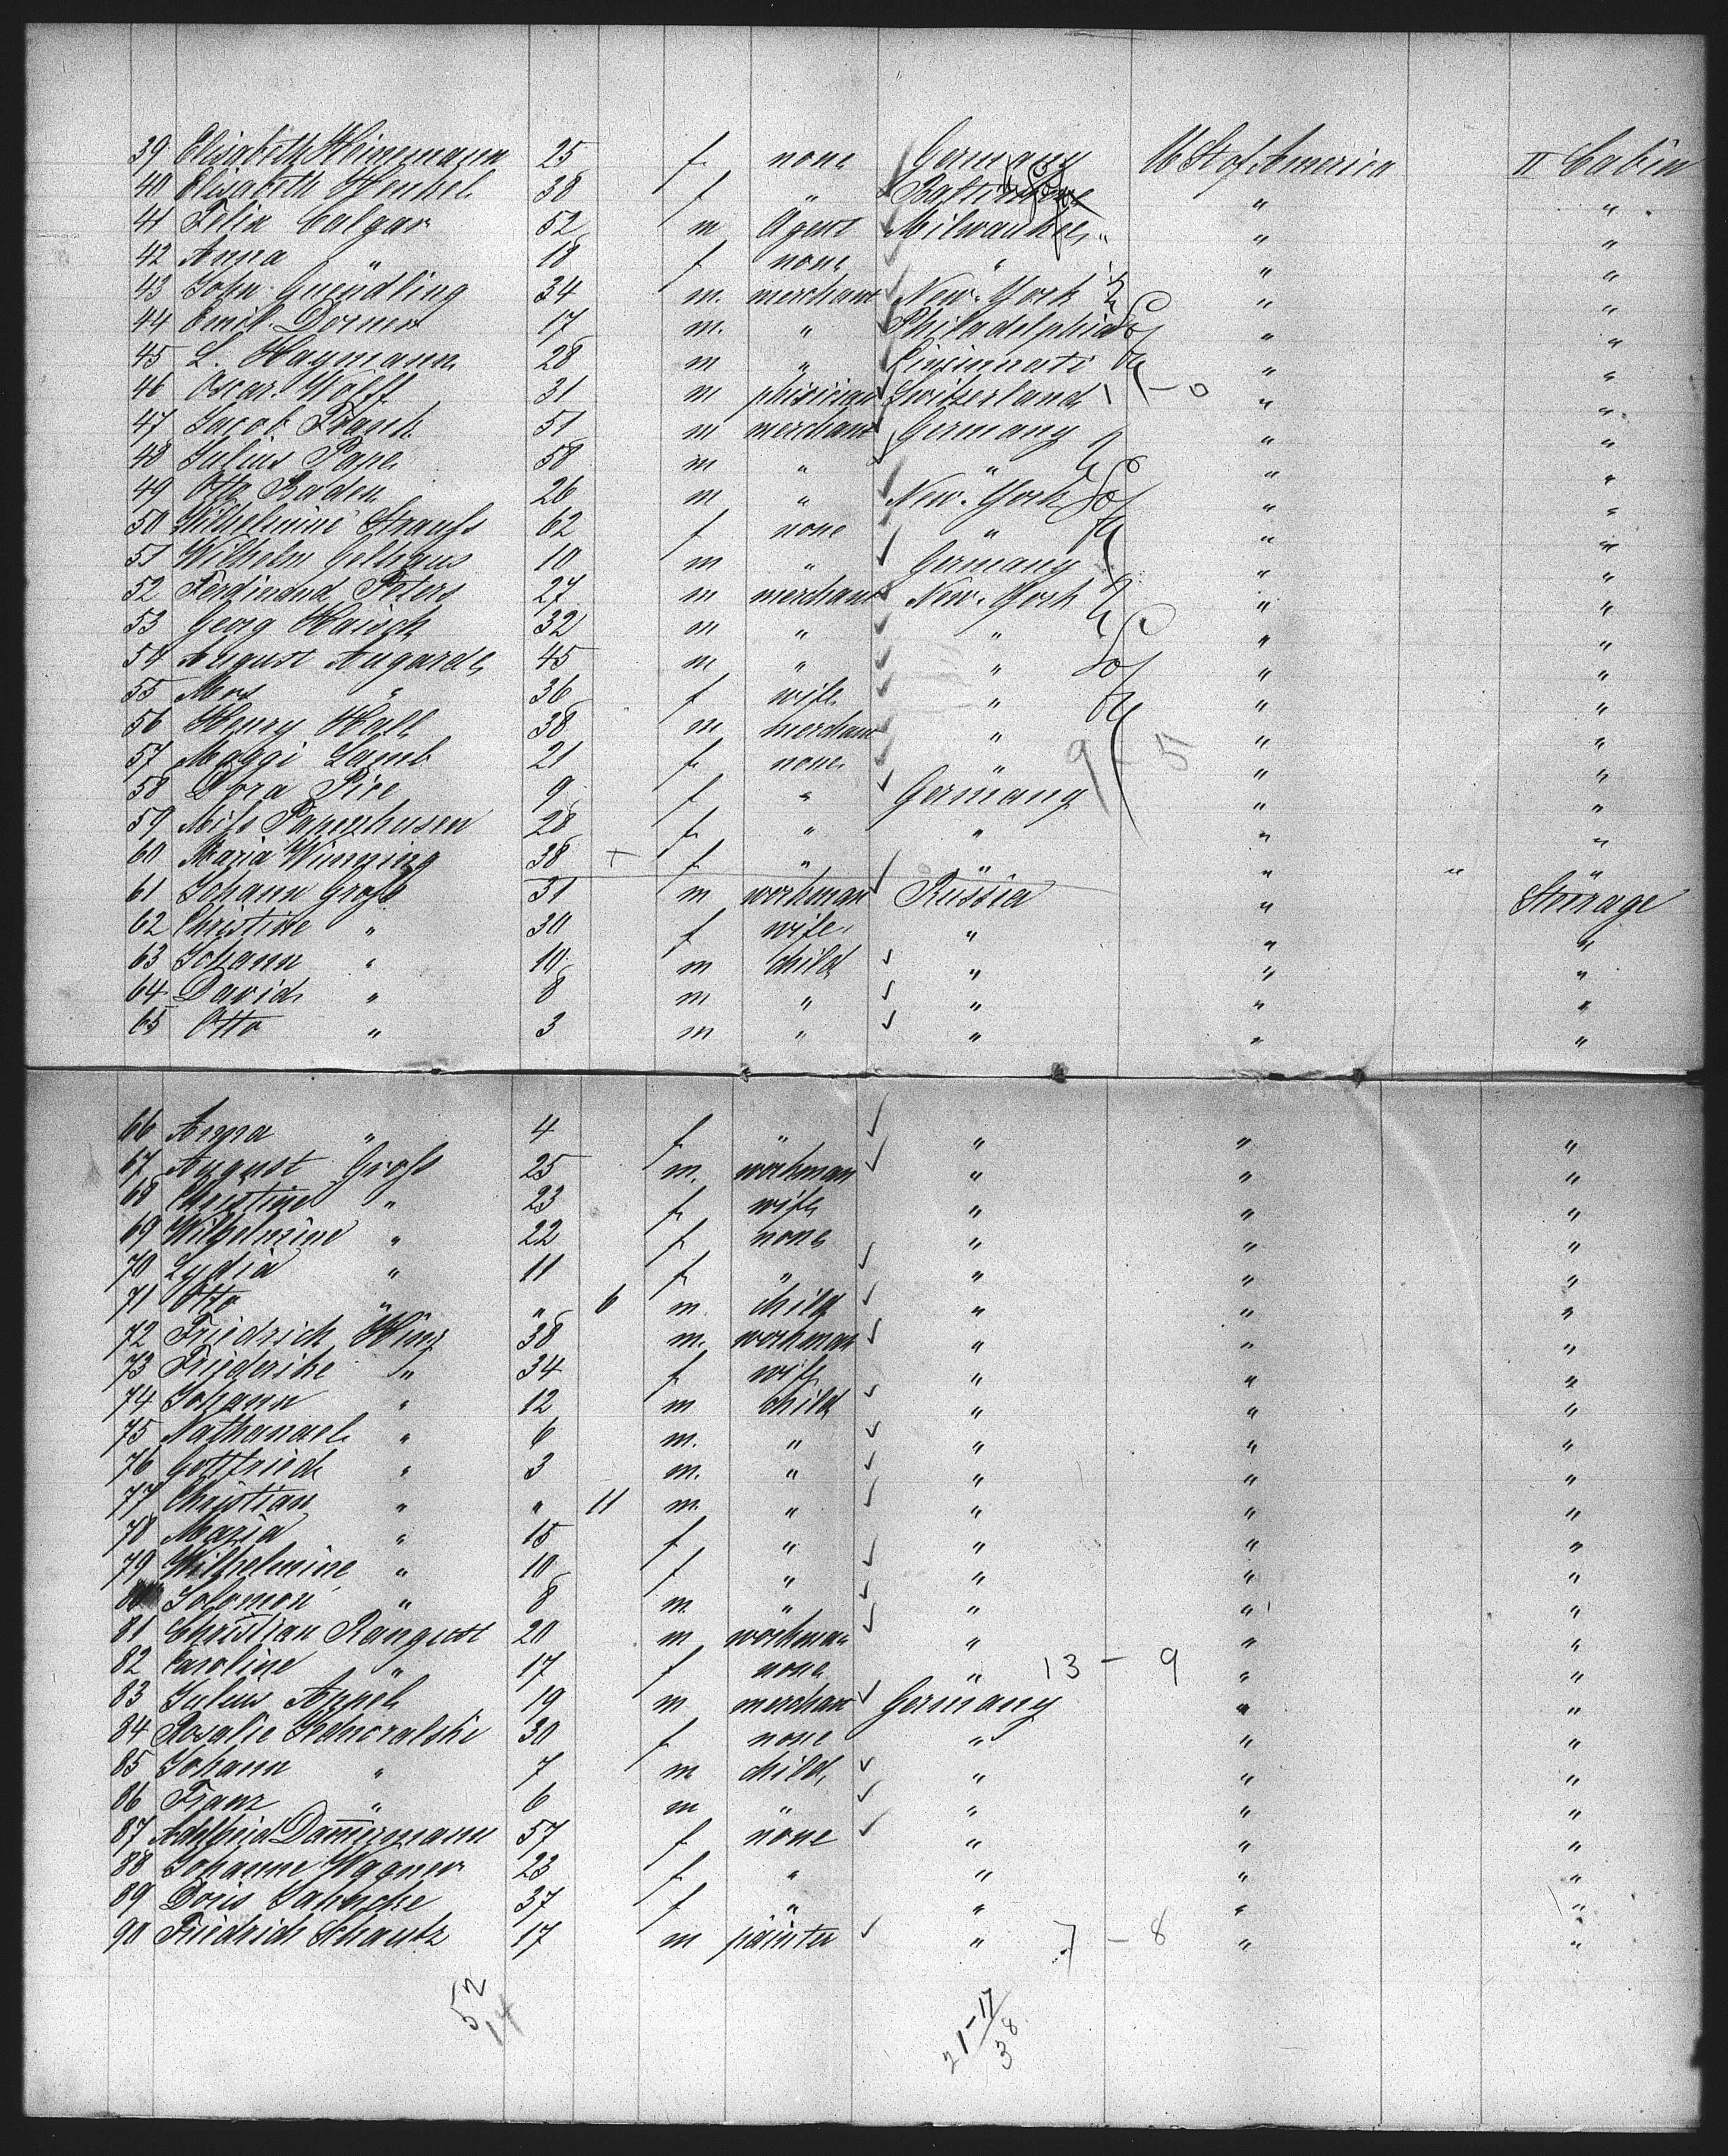 39 Elisabeth Heinemann 25 f none Germany U St of America II Cabin
40 Elisabeth Henkel 38 f " Baltimore " "
41 Felix Calgar 52 m Agent Milwaukee " "
42 Anna " 18 f none " " "
43 John Guendling 34 m. merchant New-York " "
44 Emil Dorner 17 m. " Philadelphia " "
45 L. Haymann 28 m " Cincinnati " "
46 Oscar Wolff 31 m phisician Switzerland 1 - 0 " "
47 Jacob Frank 51 m merchant Germany " "
48 Julius Pape 58 m " " " "
49 Otto Baden 26 m " New-York " "
50 Wilhelmine Strauss 62 f none " " "
51 Wilhelm Gelhaus 10 m " Germany " "
52 Ferdinand Peters 27 m merchant New-York " "
53 Georg Haisch 32 m " " " "
54 August Augarde 45 m " " " "
55 Mrs " 36 f wife " " "
56 Henry Hall 38 m merchant " " "
57 Maggi Lamb 21 f none " 9 - 5 " "
58 Dora Pire 9 f " Germany " "
59 Papenhusen 28 f " " " "
60 Maria Wunning 38 + f " " " " "
61 Johann Gross 31 m workman Russia " Steerage
62 Christine " 30 f wife " " "
63 Johann " 10 m child " " "
64 David " 8 m " " " "
65 Otto " 3 m " " " "
66 Anna " 4 f " " " "
67 August Gross 25 m. workman " " "
68 Christine " 23 f wife " " "
69 Wilhelmine " 22 f none " " "
70 Lydia " 11 f " " " "
71 Otto " " 6 m child " " "
72 Friedrich Hinz 38 m. workman " " "
73 Friederike " 34 f wife " " "
74 Johann " 12 m child " " "
75 Nathanael " 6 m. " " " "
76 Gottfried " 3 m. " " " "
77 Christian " " 11 m. " " " "
78 Maria " 15 f " " " "
79 Wilhelmine " 10 f " " " "
80 Solomon " 8 m. " " " "
81 Christian Rangust 20 m workman " " "
82 Caroline " 17 f none " 13 - 9 " "
83 Julius Appel 19 m merchant Germany " "
84 Rosalie 30 f none " " "
85 Johann " 7 m child " " "
86 Franz " 6 m " " " "
87 Adelheid Dammermann 57 f none " " "
88 Johanne Wagner 23 f " " " "
89 Doris 37 f " " " "
90 Friedrich Schautz 17 m painter " 7 - 8 " "
52
14
21-17
38